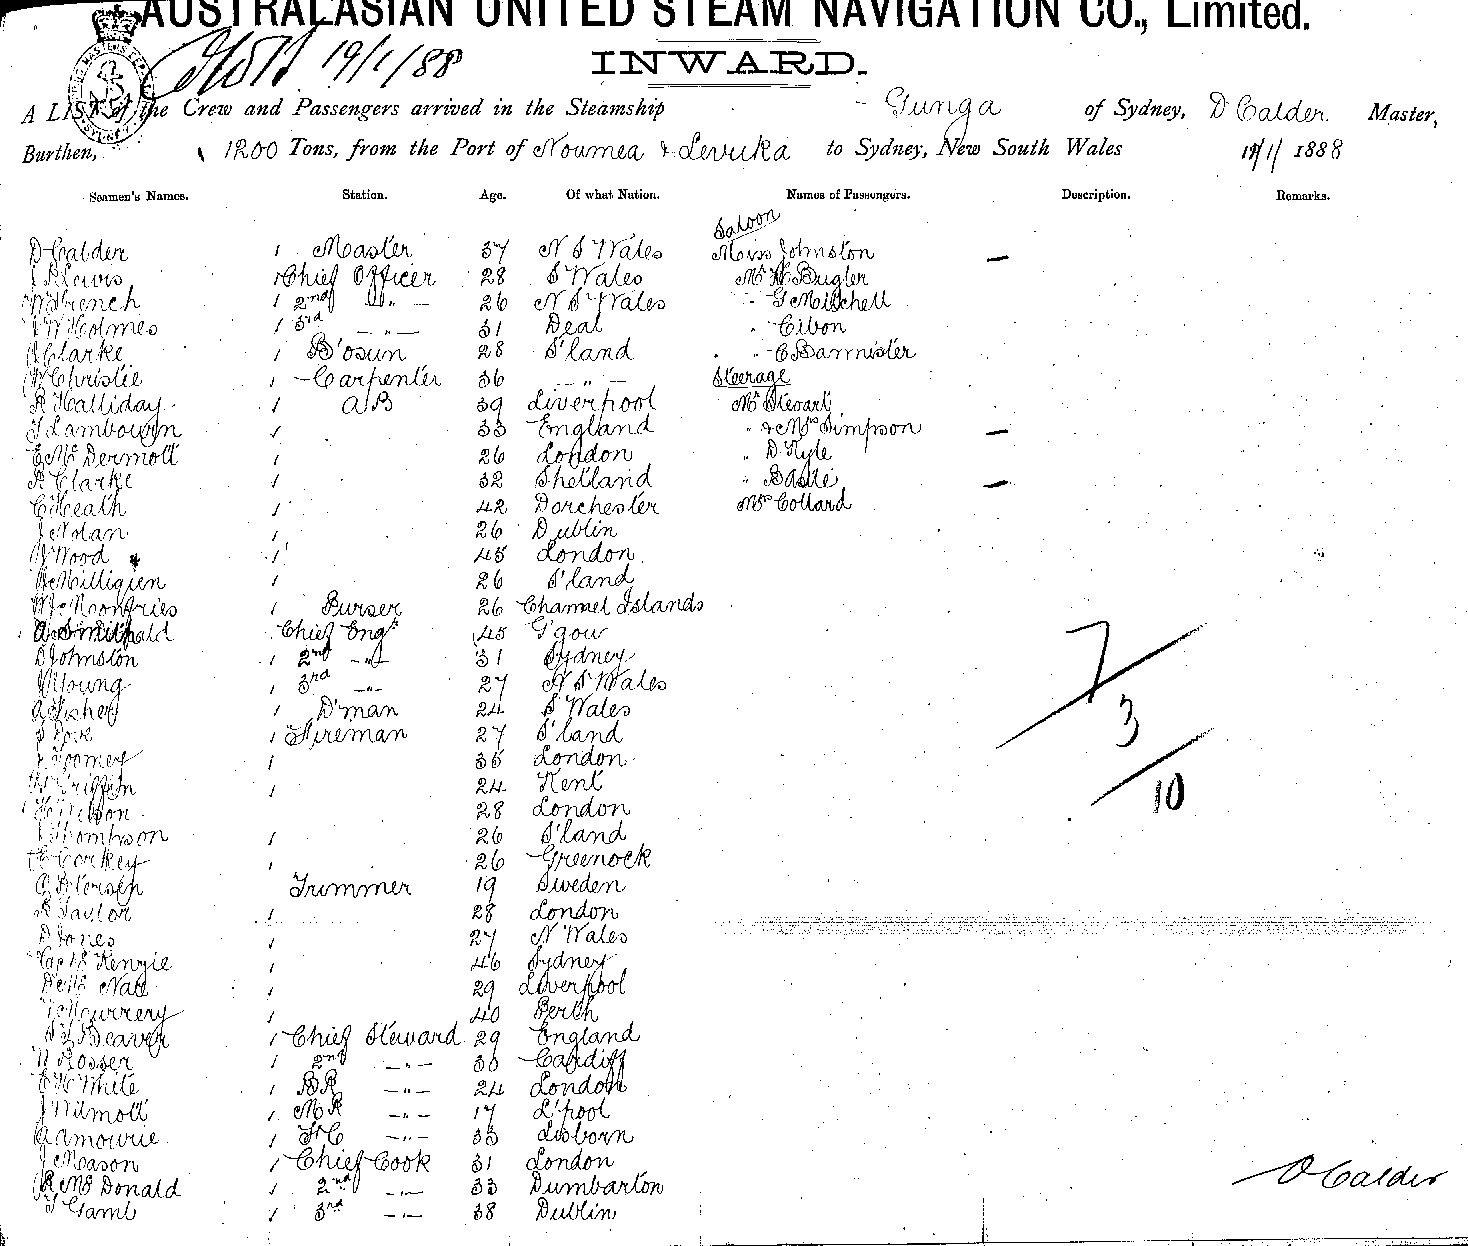 AUSTRALASIAN UNITED STEAM NAVIGATION CO., Limited.
19/1/88
INWARD.
A LIST of the Crew and Passengers arrived in the Steamship Gunga of Sydney, D Calder Master,
Burthen, 1200 Tons, from the Port of Noumea & Levuka to Sydney, New South Wales 19/1/ 1888
Seamen's Names. Station. Age. Of what Nation. Names of Passengers. Description. Remarks.
Saloon
D Calder 1 Master 37 N S Wales Miss Johnston —
Lewis 1 Chief Officer 28 S Wales Mr H Bugler
W French 1 2nd " — 26 N S Wales " G Mitchell
W Holmes 1 3rd — " — 31 Deal " Cibon
Clarke 1 B'osun 28 S'land " C Bannister
W Christie 1 Carpenter 36 — " — Steerage
R Halliday 1 AB 39 Liverpool Mr Stewart
Lambourn 1 33 England " & Mrs Simpson —
E McDermott 1 26 London " D Kyle
Clarke 1 32 Shetland " Bastie —
C Heath 1 42 Dorchester Mrs Collard
J Nolan 1 26 Dublin
Wood 1 45 London
McMilligien 1 26 S'land
1 Purser 26 Channel Islands
1 Chief Engr 45 G'gow
D Johnston 1 2nd — " 31 Sydney
Young 1 3rd — " — 27 N S Wales
A Fisher 1 D'man 24 S Wales
1 Fireman 27 S'land
Toomey 1 35 London
Griffin 1 24 Kent
28 London
Thompson 1 26 S'land
Corkey 1 26 Greenock
Trimmer 19 Sweden
R Taylor 1 28 London
D Jones 1 27 N Wales
Kenzie 1 46 Sydney
1 29 Liverpool
1 40 Perth
Beaver 1 Chief Steward 29 England
Rosser 1 2nd — " — 30 Cardiff
E H White 1 BR — " — 24 London
J Wilmott 1 MR — " — 17 L'pool
1 — " — 35 Lisborn
J Mason 1 Chief Cook 31 London
R McDonald 1 2nd — " — 33 Dumbarton
1 3rd — " — 38 Dublin
7
3
10
D Calder